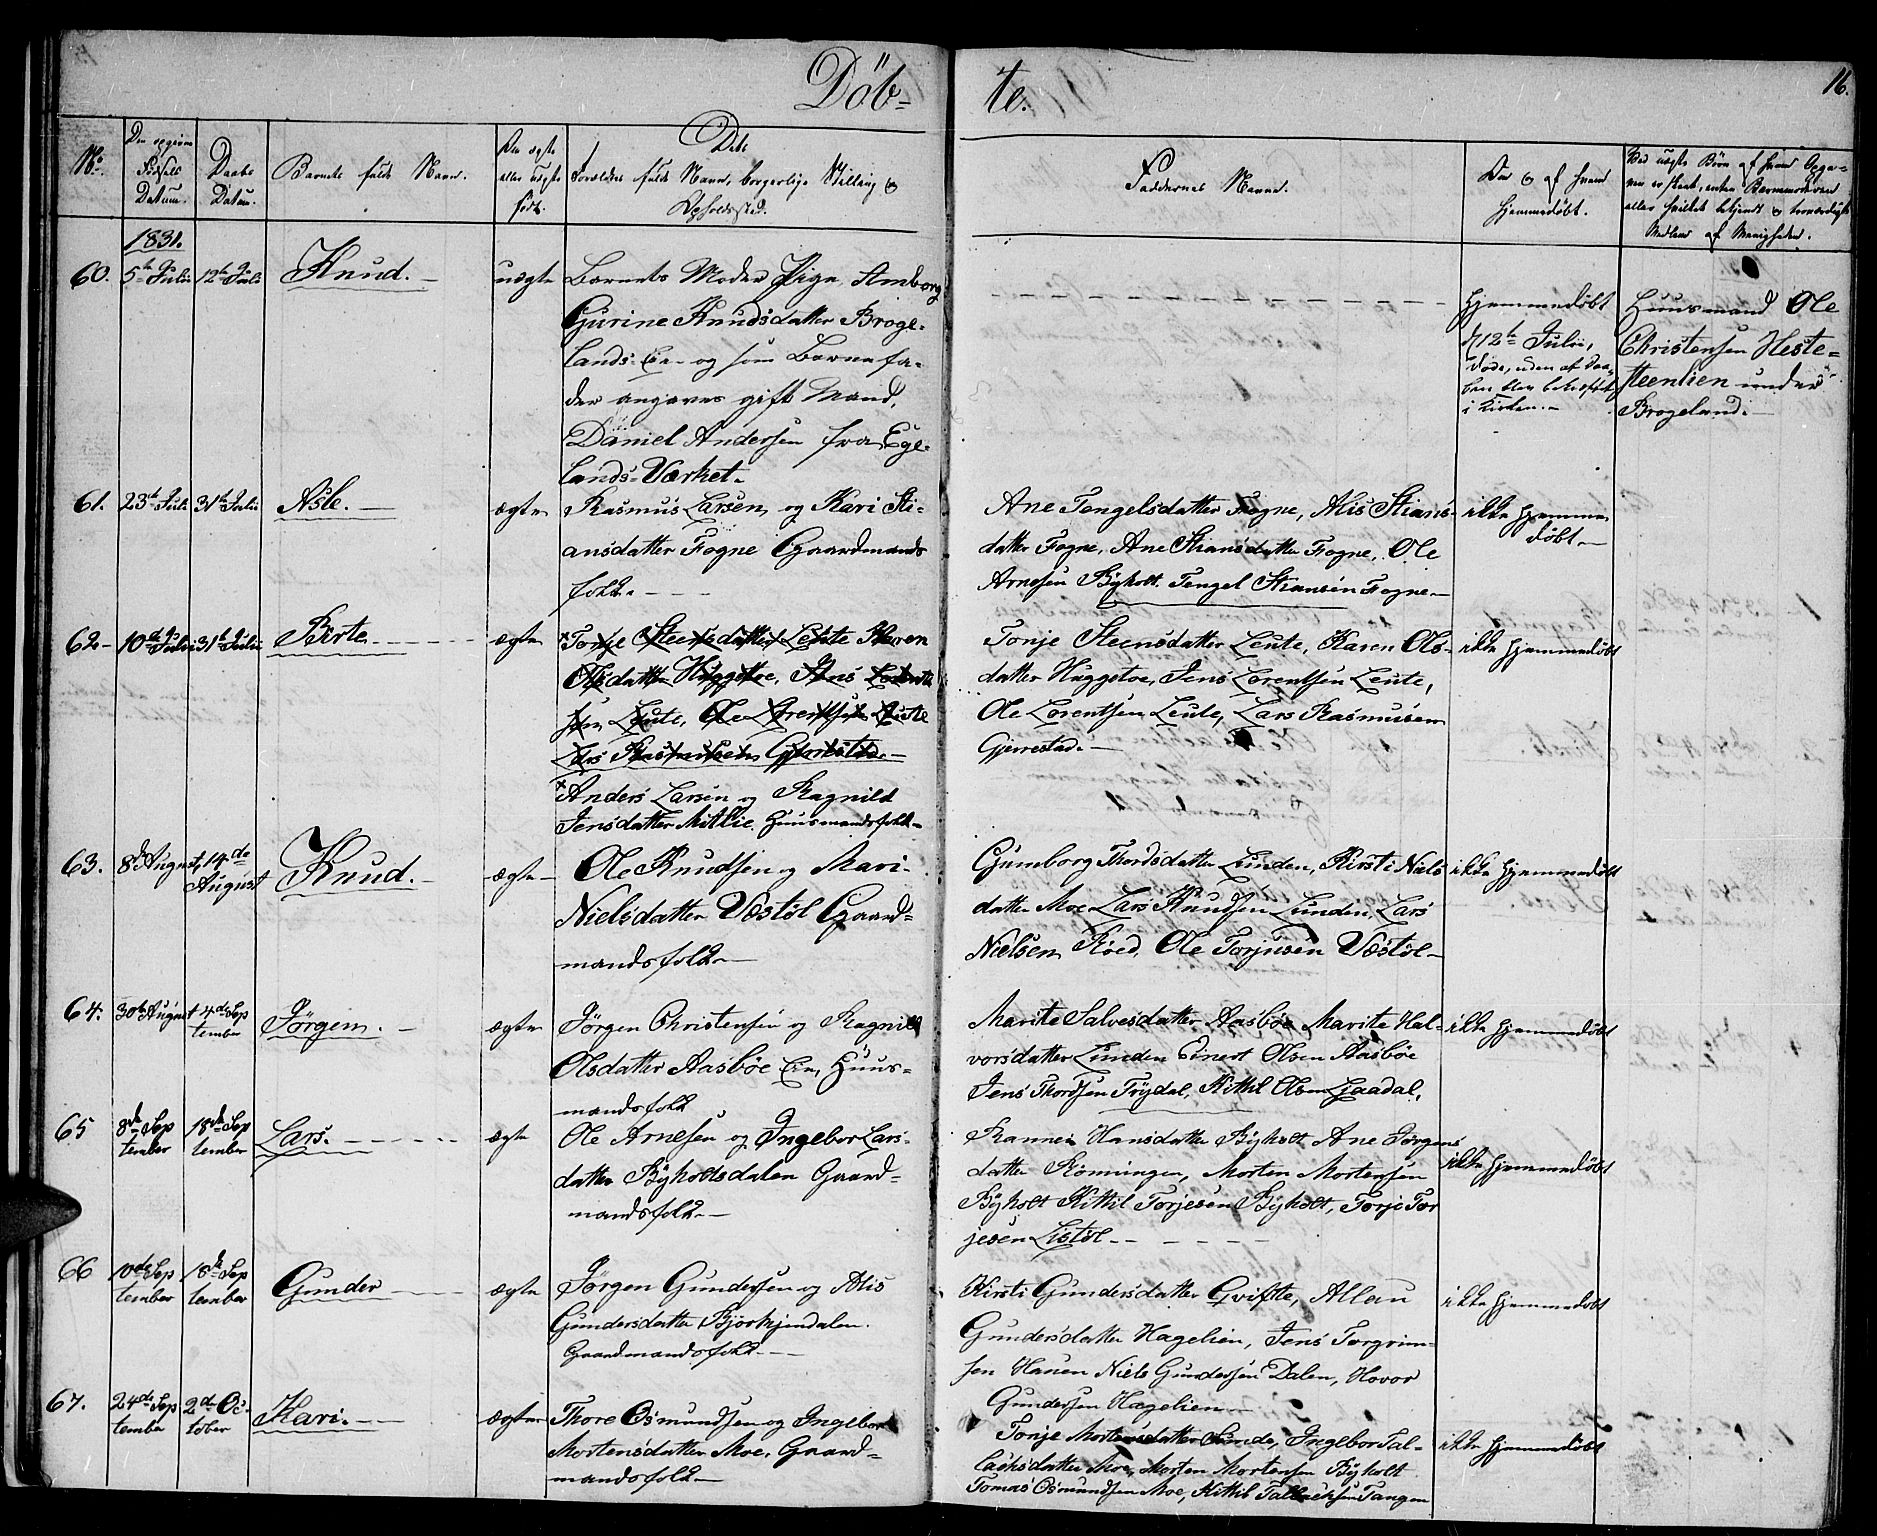 Döb-
te.
16.
No.
Den opgivne
Fødsels
Datum.
Daabs
Datum.
Barnets fulde Navn.
Om ægte
eller uægte
født.
Dets
Forældres fulde Navn, borgerlige Stilling og
Opholdssted.
Faddernes Navne.
Om og af hvem
hjemmedøbt.
Ved uægte Børn af hvem Opga-
ven er skeet, enten Barnemoderen
eller hvilket bekjendt og troværdigt
Medlem af Menigheden.
1831.
60. 5te Julii 12te Julii Knud. uægte
Barnets Moder Pige Amborg
Gurine Knudsdatter Broge-
lands-Eie og som Barnefa-
der angaves gift Mand,
Daniel Andersen fra Ege-
lands-Værket.
hjemmedøbt
d 12te Julii,
døde, uden at Daa-
ben blev bekræftet
i Kirken.
Huusmand Ole
Christensen Heste-
steenlien under
Brogeland.
61. 23de Julii 31te Julii Asle. ægte
Rasmus Larsen og Kari Sti-
ansdatter Fogne Gaardmands
folk.
Ane Tengelsdatter Fogne, Alis Stians-
datter Fogne, Ane Stiansdatter Fogne, Ole
Arnesen Byholt. Tengel Stiansen Fogne
ikke hjemme
døbt
62 10de Julii 31te Julii Birte ægte
Tonje Steensdatter Leute Karen
Olsdatter Huggstoe, Jens Lorents
sen Leute, Ole Lorentsen Leute
Lars Rasmusen Gjerrestad.
Anders Larsen og Ragnild
Jensdatter Mitlie. Huusmandsfolk
Tonje Steensdatter Leute, Karen Ols-
datter Huggstoe, Jens Lorentsen Leute,
Ole Lorentsen Leute, Lars Rasmusen
Gjerrestad.
ikke hjemmedøbt
63. 8de August 14de
August Knud. ægte
Ole Knudsen og Mari
Nielsdatter Væstøl Gaard-
mandsfolk
Gumborg Thordsdatter Lunden, Kirsti Niels
datter Moe Lars Knudsen Lunden, Lars
Nielsen Røed, Ole Torjusen Væstøl
ikke hjemmedøbt
64. 30te August 4de Sep
tember Jörgen. ægte
Jörgen Christensen og Ragnild
Olsdatter Aasbøe Eie, Huus-
mandsfolk
Marite Salvesdatter Aasbøe Marite Hal-
vorsdatter Lunden Einert Olsen Aasbøe
Jens Thordsen Trydal, Kittil Olsen Ljaadal,
ikke hjemmedøbt
65 8de Sep
tember 18de Sep
tember Lars. ægte
Ole Arnesen og Ingebor Lars-
datter Byholtsdalen Gaard-
mandsfolk
Rannei Hansdatter Byholt Ane Jörgens
datter Rønningen, Morten Mortensen
Byholt Kittil Torjesen Byholt, Torje Tor
jesen Listøl
ikke hjemmedøbt
66 10de Sep
tember 18de Sep
tember Gunder ægte
Jörgen Gundersen og Alis
Gundersdatter Bjorkjendalen.
Gaardmandsfolk
Kirsti Gundersdatter Gvifte, Allau
Gundersdatter Hagelien, Jens Torgrim-
sen Hauen Niels Gundersen Dalen, Hovor
Gundersen Hagelien
ikke hjemmedøbt
67. 24de Sep
tember 2de Oc-
tober Kari. ægte
Thore Osmundsen og Ingebor
Mortensdatter Moe, Gaard-
mandsfolk
Tonje Mortensdatter Sunde, Ingebor Tal-
laksdatter Moe, Morten Mortensen Byholt
Tomas Osmundsen Moe, Kittil Tallacksen Tangen
ikke hjemmedøbt